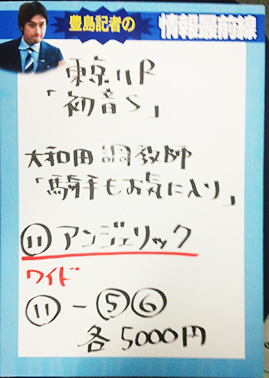 豊島記者の
情報最前線
東京11R
「初音S」
大和田調教師
「騎手もお気に入り」
⑪アンジェリック
ワイド
⑪-⑤⑥
各5000円